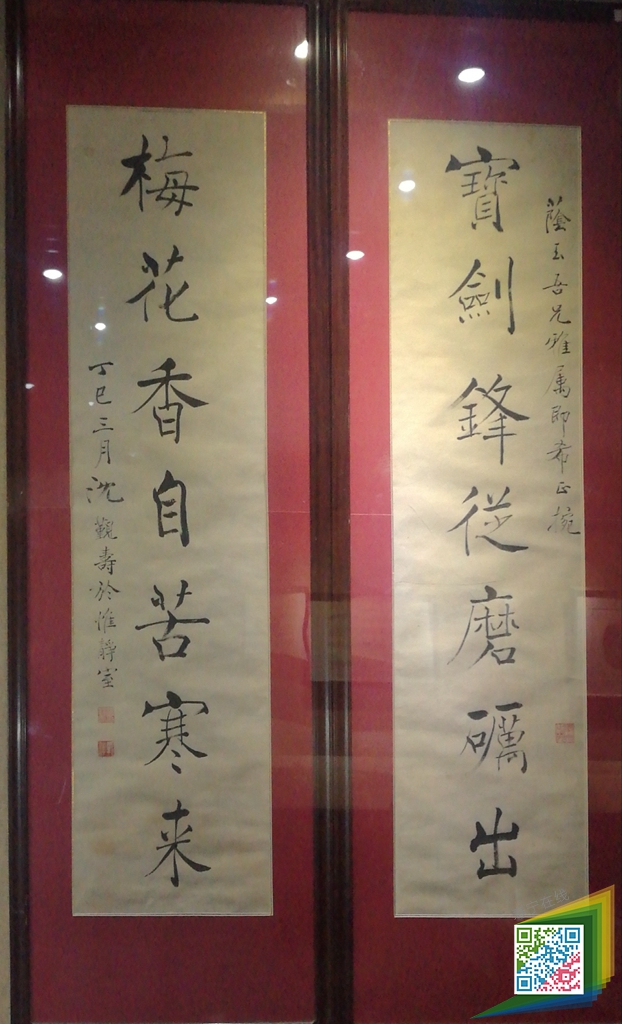 蔭玉吾兄雅属即希正捥
寶劍鋒從磨礪出
梅花香自苦寒来
丁巳三月沈觀壽於惟靜室